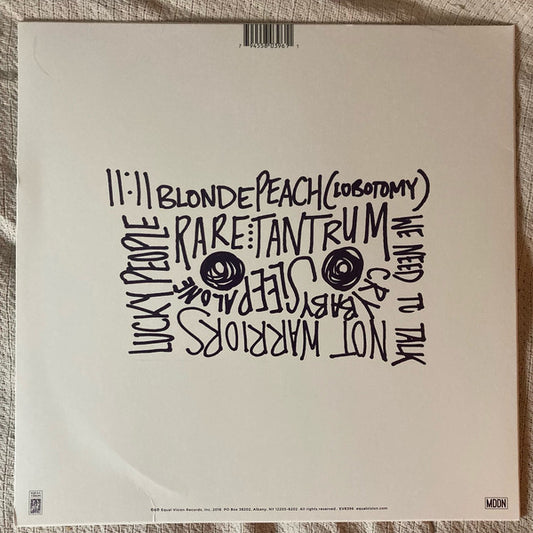 7 94558 03961 1
11:11 BLONDE PEACH (LOBOTOMY)
RARE TANTRUM
WE NEED TO TALK
CRYBABY
SLEEP ALONE
NOT WARRIORS
LUCKY PEOPLE
©℗ Equal Vision Records, Inc. 2016 PO Box 38202, Albany, NY 12203-8202 All rights reserved. EVR396 equalvision.com
MDDN